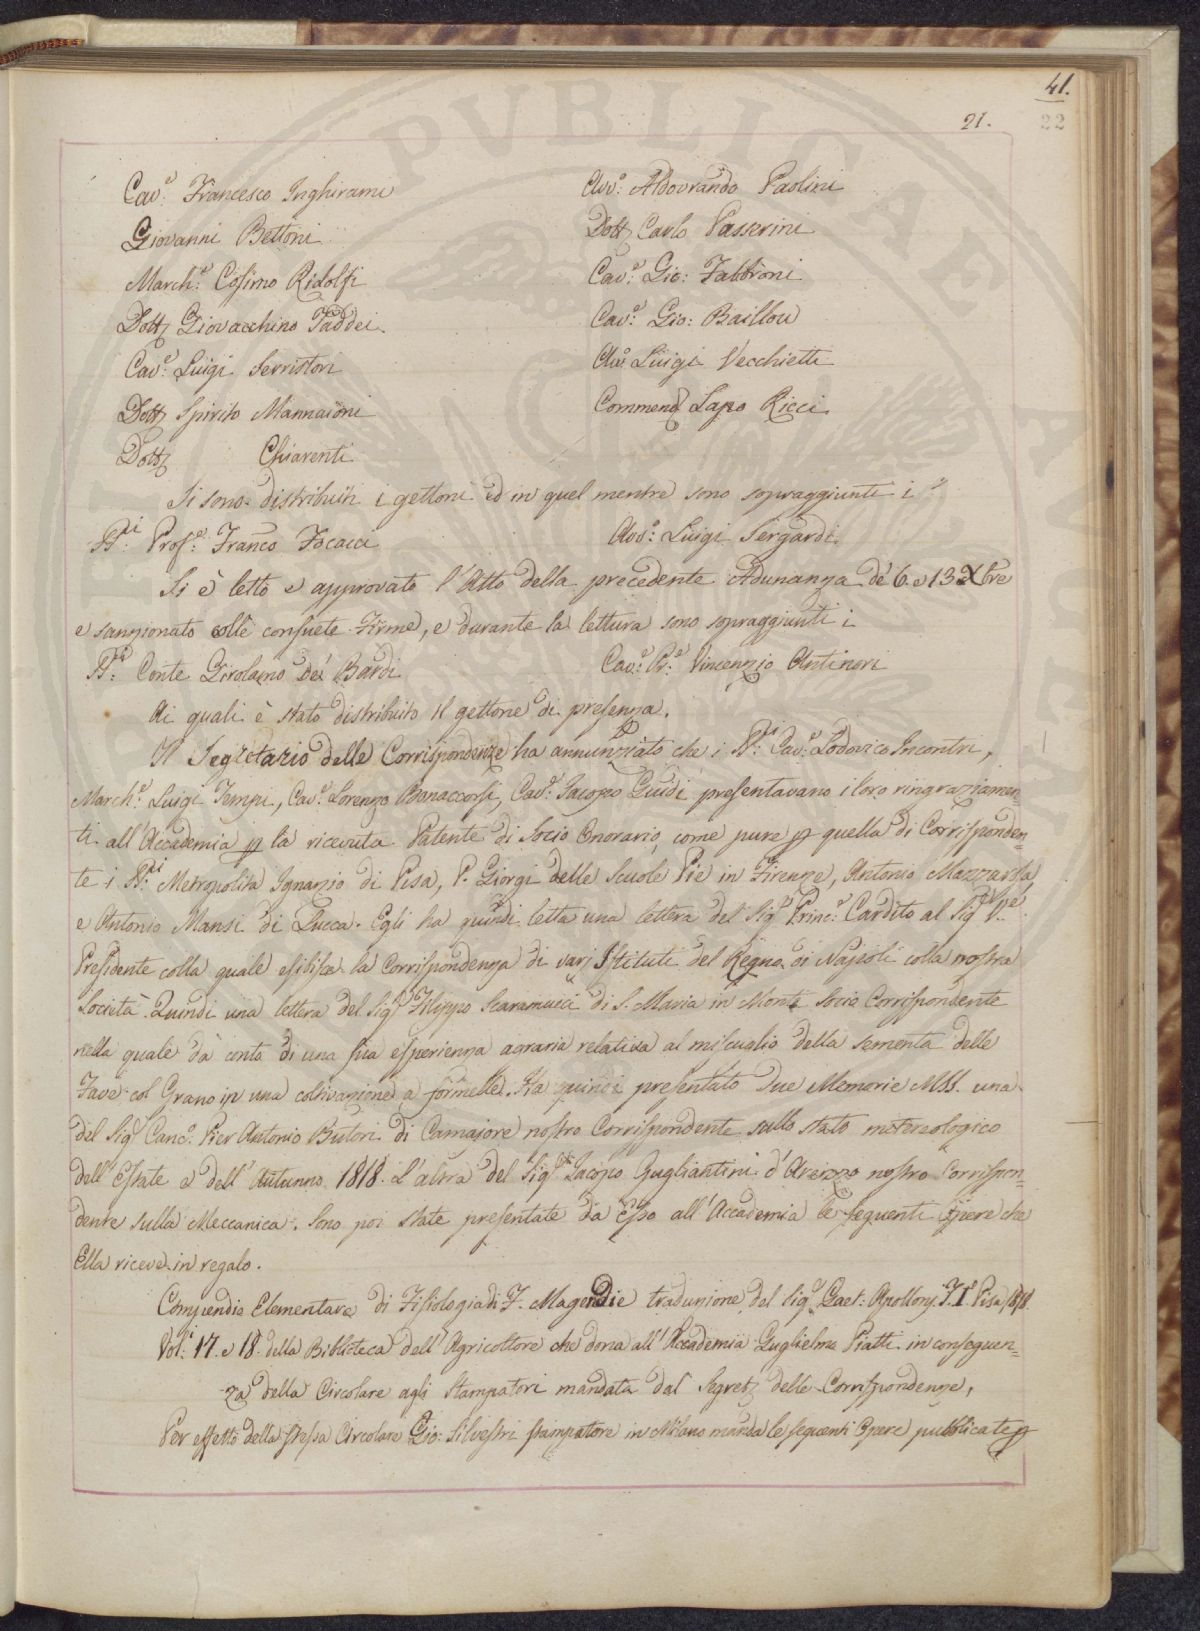 41.
21. 22
Cav.e Francesco Inghirami
Avv.o Aldovrando Paolini
Giovanni Bettoni
Dott. Carlo Passerini
March.e Cosimo Ridolfi
Cav.e Gio: Fabbroni
Dott. Giovacchino Taddei
Cav.e Gio: Baillou
Cav.e Luigi Serristori
Avv.o Luigi Vecchietti
Dott. Spirito Mannaioni
Commend. Lapo Ricci
Dott. Chiarenti
Si sono distribuiti i gettoni ed in quel mentre sono sopraggiunti i
SS.ri Prof.e Franco Focacci
Avv.o Luigi Sergardi
Si è letto e approvato l'Atto della precedente Adunanza de' 6. e 13. Xbre
e sanzionato colle consuete Firme, e durante la lettura sono sopraggiunti i
SS.ri Conte Girolamo De' Bardi
Cav.e Pr.e Vincenzio Antinori
Ai quali è stato distribuito il gettone di presenza.
Il Segretario delle Corrispondenze ha annunziato che i SS.ri Cav.e Lodovico Incontri,
March.e Luigi Tempi, Cav.e Lorenzo Bonaccorsi, Cav.e Jacopo Guidi presentavano i loro ringraziamen=
ti all'Accademia p la ricevuta Patente di Socio Onorario, come pure p quella di Corrisponden=
te i SS.ri Metropolita Ignazio di Pisa, P. Giorgi delle Scuole Pie in Firenze, Antonio Mazzarosa
e Antonio Mansi di Lucca. Egli ha quindi letta una lettera del Sig.r Princ.e Cardito al Sig.r V.e
Presidente colla quale esibisce la Corrispondenza di varj Istituti del Regno di Napoli colla nostra
Società. Quindi una lettera del Sig.r Filippo Scaramucci di S. Maria in Monte Socio Corrispondente
nella quale dà conto di una sua esperienza agraria relativa al miscuglio della sementa delle
Fave col Grano in una coltivazione a formelle. Ha quindi presentato due Memorie MSS. una
del Sig.r Canc.e Pier Antonio Butori di Camajore nostro Corrispondente sullo stato metereologico
dell'Estate e dell'Autunno 1818. L'altra del Sig.r Jacopo Gugliantini d'Arezzo nostro Corrispon=
dente sulla Meccanica. Sono poi state presentate da Esso all'Accademia le seguenti Opere che
Ella riceve in regalo.
Compendio Elementare di Fisiologia di F. Magendie traduzione del Sig.r Gaet: Apollonj T. I. Pisa 1818.
Vol.i 17. e 18. della Biblioteca dell'Agricoltore che dona all'Accademia Guglielmo Piatti in conseguen=
za della Circolare agli Stampatori mandata dal Segret. delle Corrispondenze,
Per effetto della stessa Circolare Gio: Silvestri stampatore in Milano manda le seguenti Opere pubblicate p